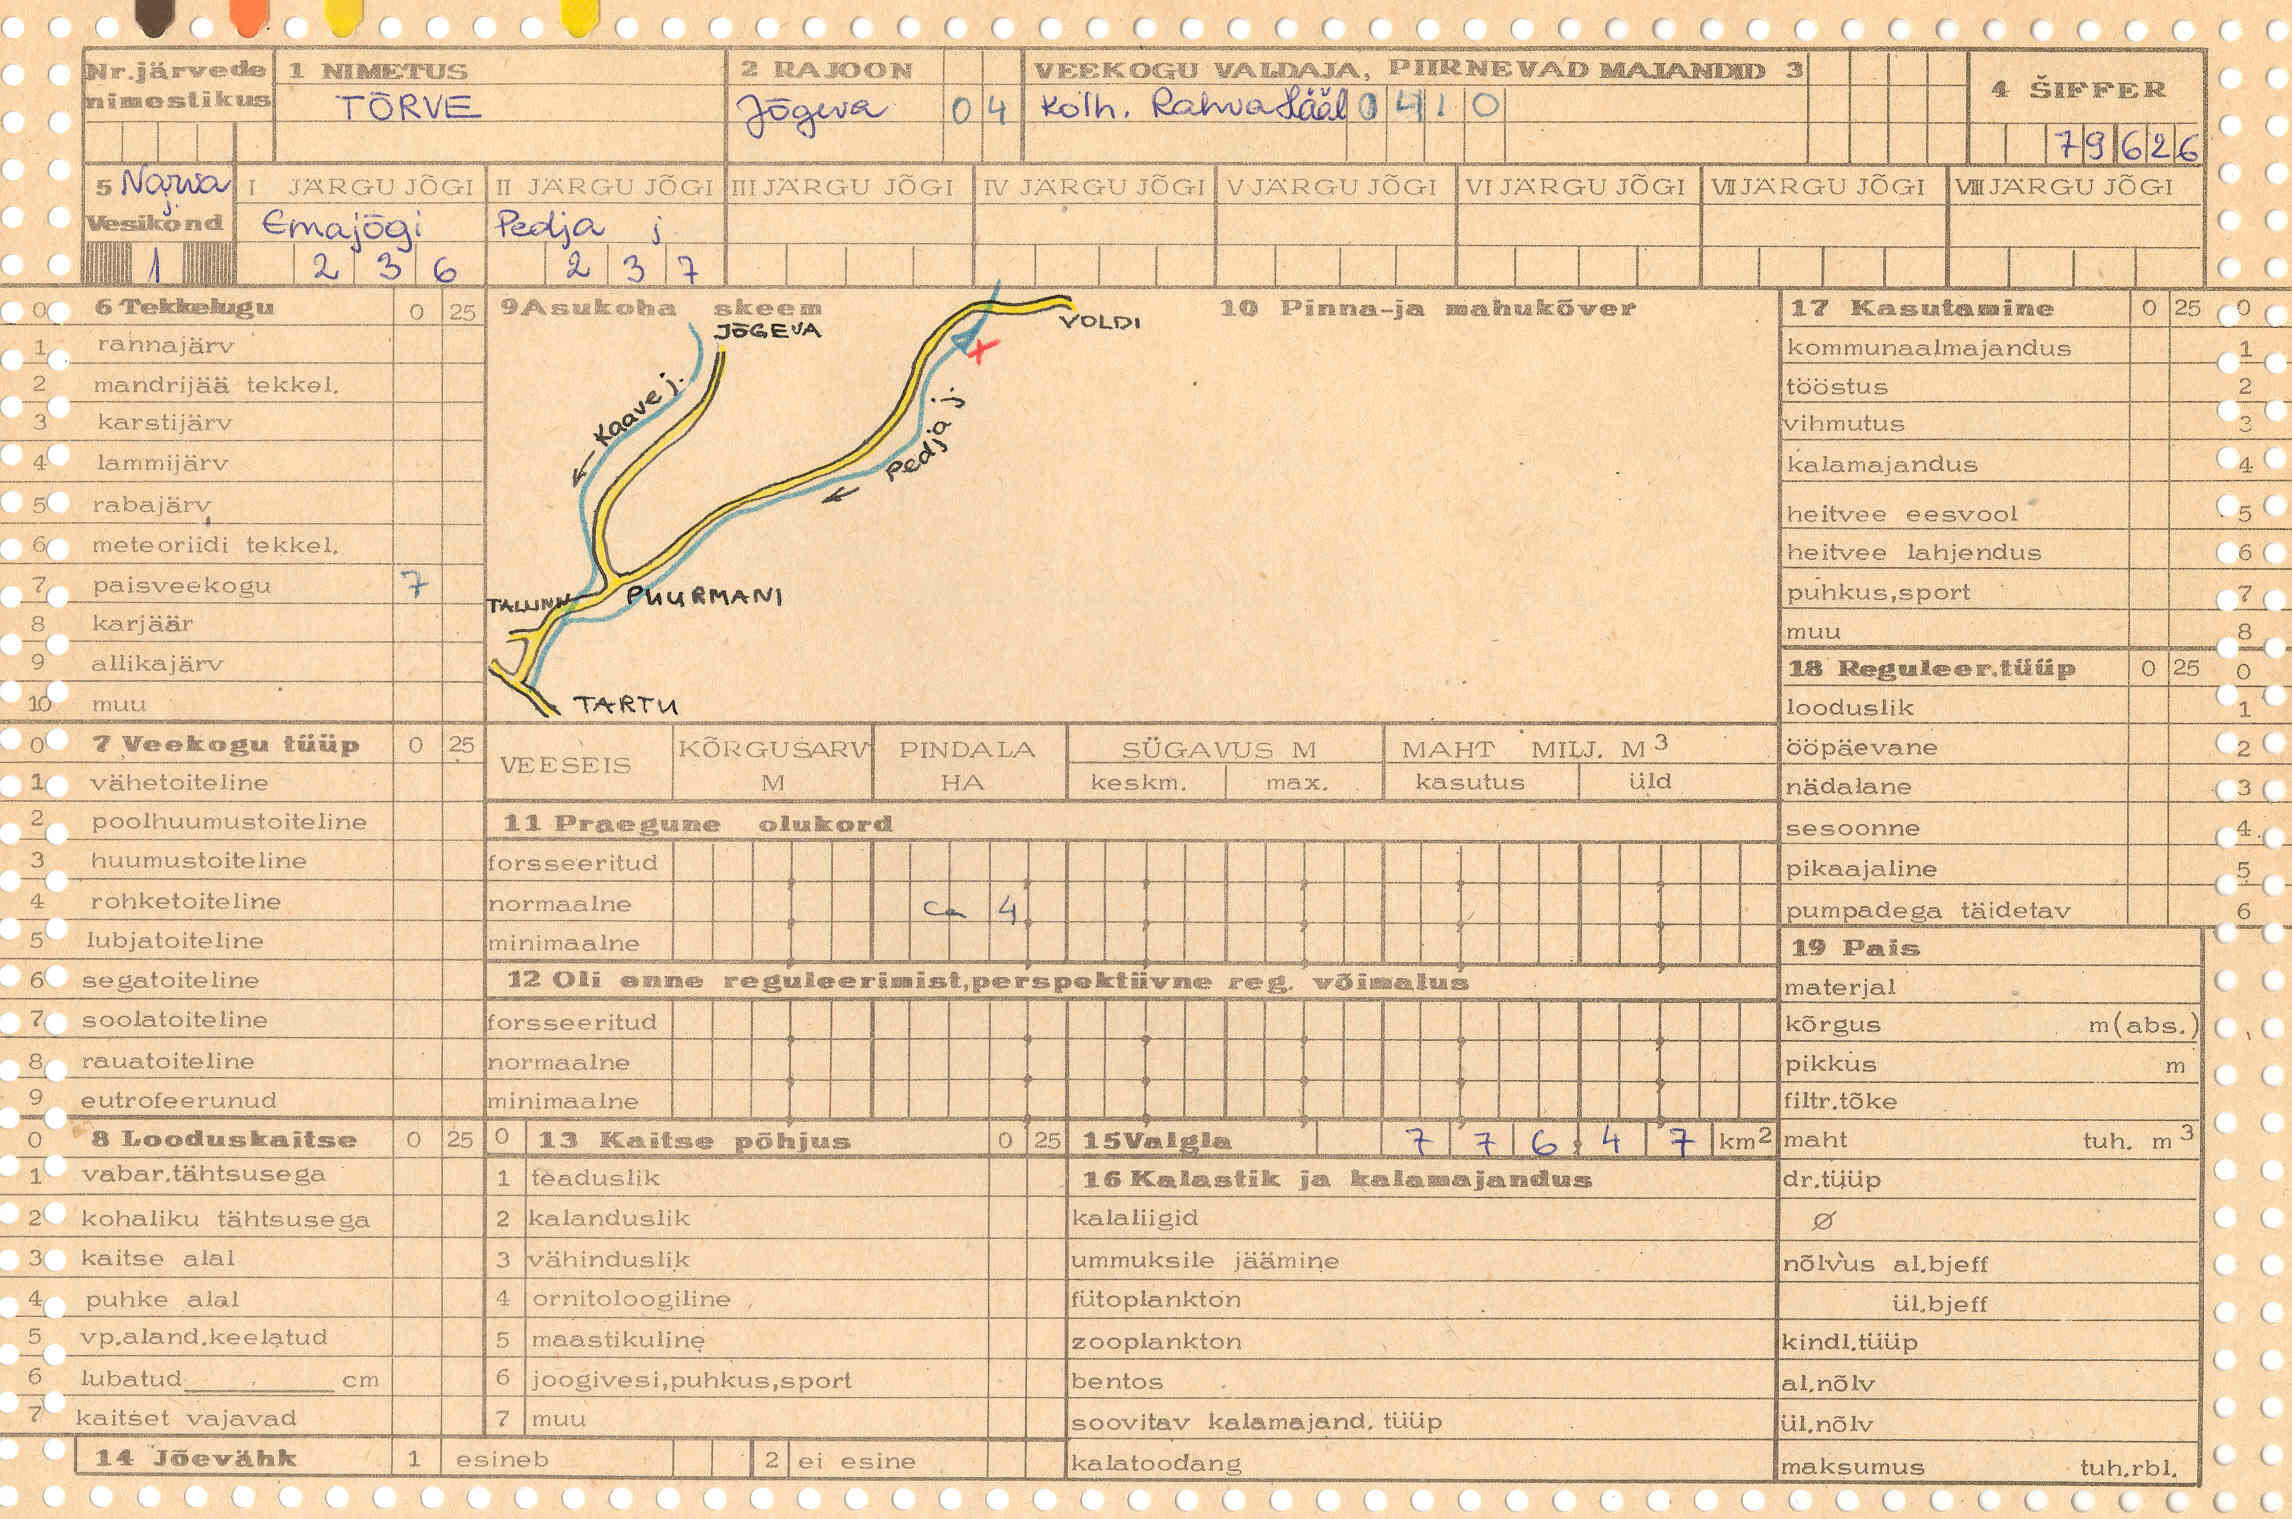 Nr.järvede nimestikus
1 NIMETUS
TÕRVE
2 RAJOON
Jõgeva 04
VEEKOGU VALDAJA, PIIRNEVAD MAJANDID 3
Kolh. Rahva Hääl 0410
4 ŠIFFER
79626
5 Narva j.
Vesikond
1
I JÄRGU JÕGI
Emajõgi
236
II JÄRGU JÕGI
Pedja j
237
III JÄRGU JÕGI
IV JÄRGU JÕGI
V JÄRGU JÕGI
VI JÄRGU JÕGI
VII JÄRGU JÕGI
VIII JÄRGU JÕGI
0 6 Tekkelugu 0 25
1 rannajärv
2 mandrijää tekkel.
3 karstijärv
4 lammijärv
5 rabajärv
6 meteoriidi tekkel.
7 paisveekogu 7
8 karjäär
9 allikajärv
10 muu
0 7 Veekogu tüüp 0 25
1 vähetoiteline
2 poolhuumustoiteline
3 huumustoiteline
4 rohketoiteline
5 lubjatoiteline
6 segatoiteline
7 soolatoiteline
8 rauatoiteline
9 eutrofeerunud
0 8 Looduskaitse 0 25
1 vabar.tähtsusega
2 kohaliku tähtsusega
3 kaitse alal
4 puhke alal
5 vp.aland.keelatud
6 lubatud cm
7 kaitset vajavad
14 Jõevähk 1 esineb 2 ei esine
9 Asukoha skeem
JÕGEVA
VOLDI
Kaave j.
Pedja j
TALLINN
PUURMANI
TARTU
10 Pinna-ja mahukõver
VEESEIS
KÕRGUSARV M
PINDALA HA
SÜGAVUS M
keskm. max.
MAHT MILJ. M3
kasutus üld
11 Praegune olukord
forsseeritud
normaalne ca 4
minimaalne
12 Oli enne reguleerimist,perspektiivne reg. võimalus
forsseeritud
normaalne
minimaalne
0 13 Kaitse põhjus 0 25
1 teaduslik
2 kalanduslik
3 vähinduslik
4 ornitoloogiline
5 maastikuline
6 joogivesi,puhkus,sport
7 muu
15 Valgla 776.47 km2
16 Kalastik ja kalamajandus
kalaliigid
ummuksile jäämine
fütoplankton
zooplankton
bentos
soovitav kalamajand. tüüp
kalatoodang
17 Kasutamine 0 25 0
kommunaalmajandus 1
tööstus 2
vihmutus 3
kalamajandus 4
heitvee eesvool 5
heitvee lahjendus 6
puhkus,sport 7
muu 8
18 Reguleer.tüüp 0 25 0
looduslik 1
ööpäevane 2
nädalane 3
sesoonne 4
pikaajaline 5
pumpadega täidetav 6
19 Pais
materjal
kõrgus m(abs.)
pikkus m
filtr.tõke
maht tuh. m3
dr.tüüp
Ø
nõlvus al.bjeff
ül.bjeff
kindl.tüüp
al.nõlv
ül.nõlv
maksumus tuh.rbl.